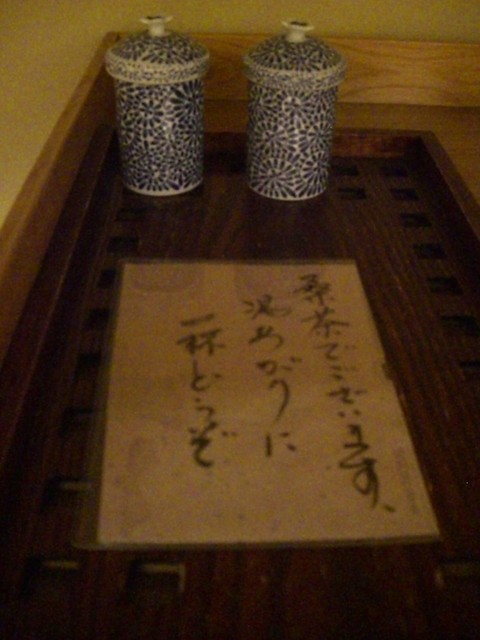 桑茶でございます、
湯あがりに
一杯どうぞ